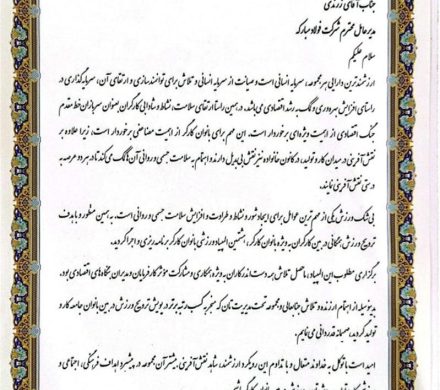 جناب آقای زرندی
مدیرعامل محترم شرکت فولاد مبارکه
سلام علیکم
ارزشمندترین دارایی هر مجموعه، سرمایه انسانی است و صیانت از سرمایه انسانی و تلاش برای توانمندسازی و ارتقای آن، سرمایه‌گذاری در
راستای افزایش بهره‌وری و کمک به رشد اقتصادی می‌باشد. در همین راستا ارتقای سلامت، نشاط و شادابی کارگران بعنوان سربازان خط مقدم
جنگ اقتصادی از اهمیت ویژه‌ای برخوردار است. این مهم برای بانوان کارگر از اهمیت مضاعفی برخوردار است، زیرا علاوه بر
نقش آفرینی در میدان کار و تولید، در کانون خانواده نیز نقش بی‌بدیل دارند و اهتمام به سلامت جسمی و روانی آن‌ها کمک می‌کند تا در هر دو عرصه به
درستی نقش آفرینی نمایند.
بی‌شک ورزش یکی از مهم‌ترین عوامل برای ایجاد شور و نشاط و طراوت و افزایش سلامت جسمی و روانی است. به همین منظور و با هدف
ترویج ورزش همگانی در بین کارگران به ویژه بانوان کارگر، هشتمین المپیاد ورزشی بانوان کارگر برنامه‌ریزی و اجرا گردید.
برگزاری مطلوب این المپیاد، ماحصل تلاش همه دست اندرکاران به ویژه همکاری و مشارکت مؤثر کارفرمایان و مدیران بنگاه‌های اقتصادی بود.
بدینوسیله از اهتمام ارزنده و تلاش جنابعالی و مجموعه تحت مدیریت‌تان که منجر به کسب رتبه برتر و پویش ترویج ورزش در بین بانوان جامعه کار و
تولید گردید، صمیمانه قدردانی می‌نمایم.
امید است با توکل به خداوند متعال و با تداوم این رویکرد ارزشمند، شاهد نقش آفرینی بیشتر آن مجموعه در پیشبرد اهداف فرهنگی، اجتماعی و